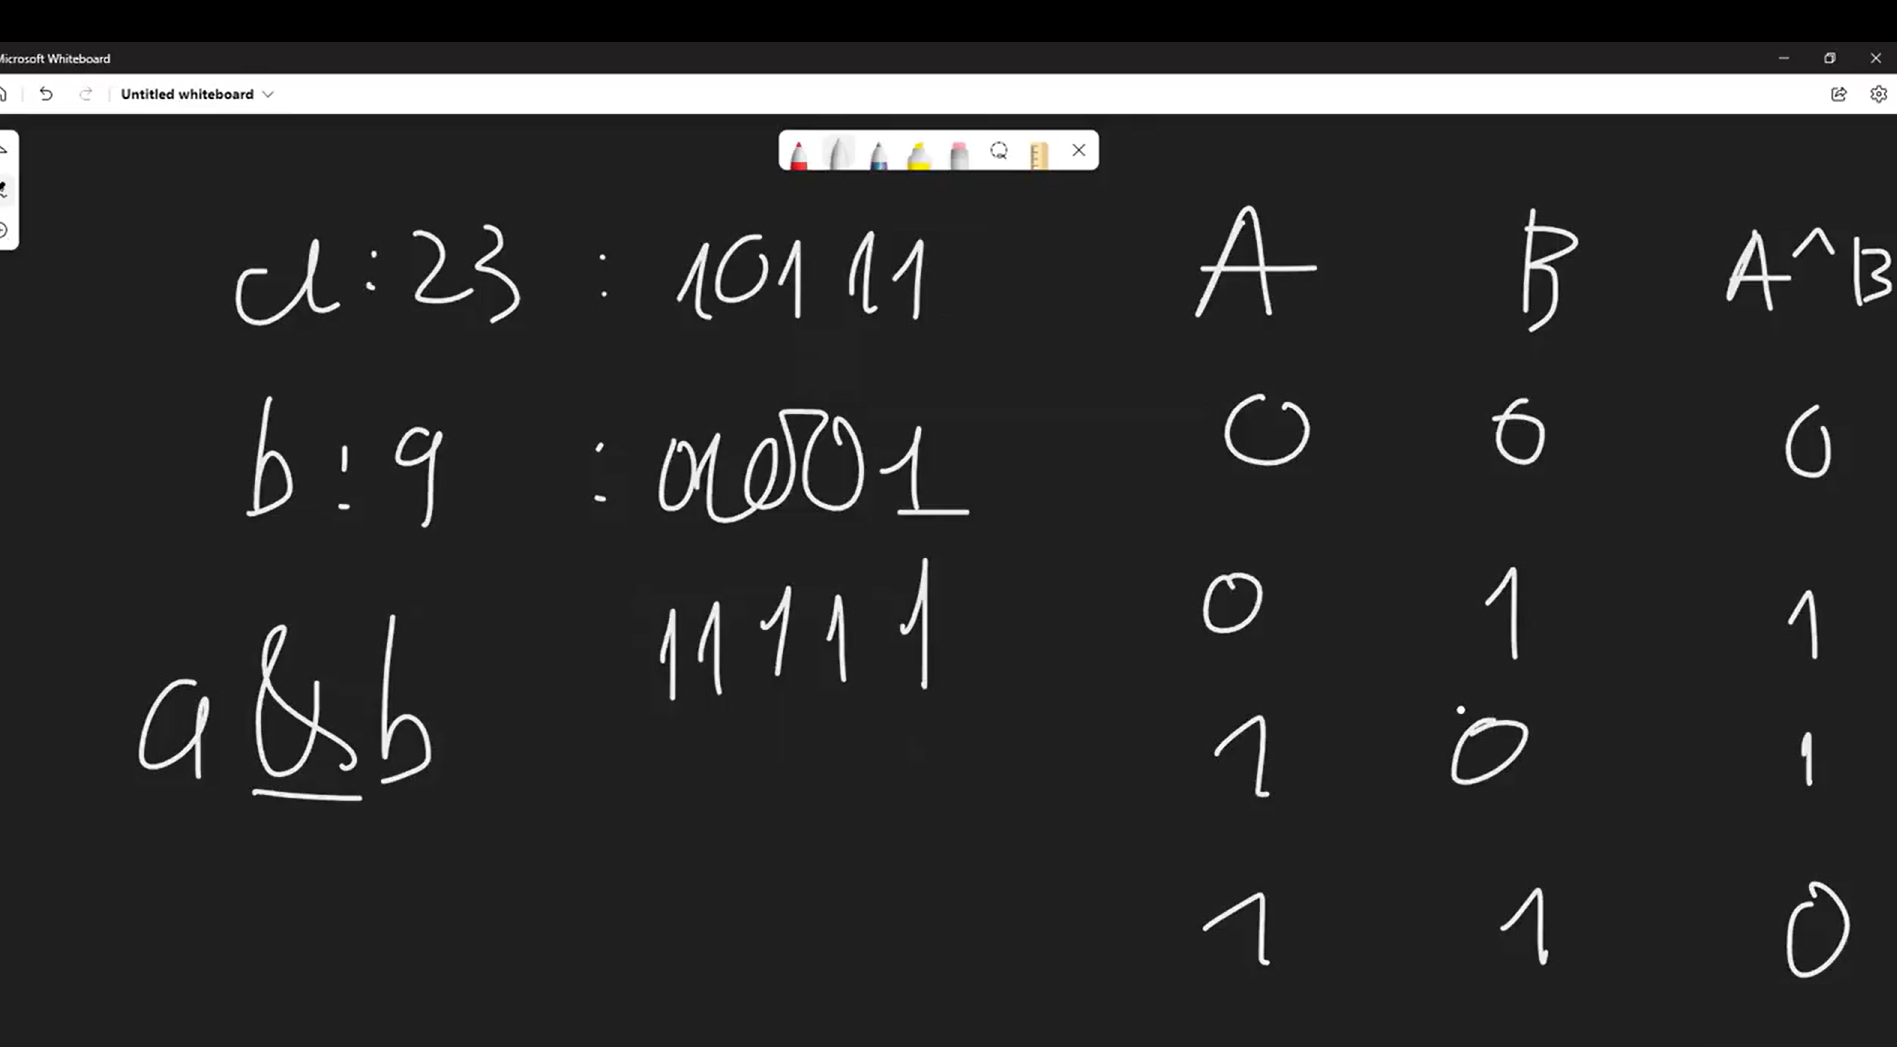 Microsoft Whiteboard
Untitled whiteboard
a : 23 : 10111
b : 9 : 01001
11111
a & b
A B A^B
0 0 0
0 1 1
1 0 1
1 1 0